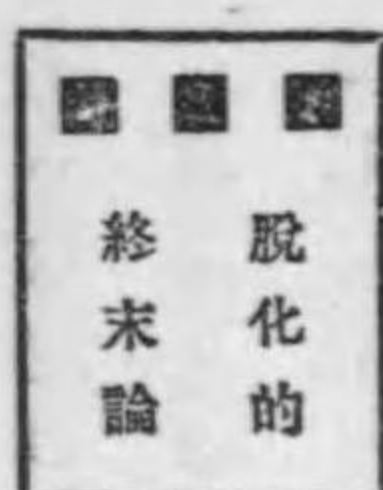 脫化的
終末論